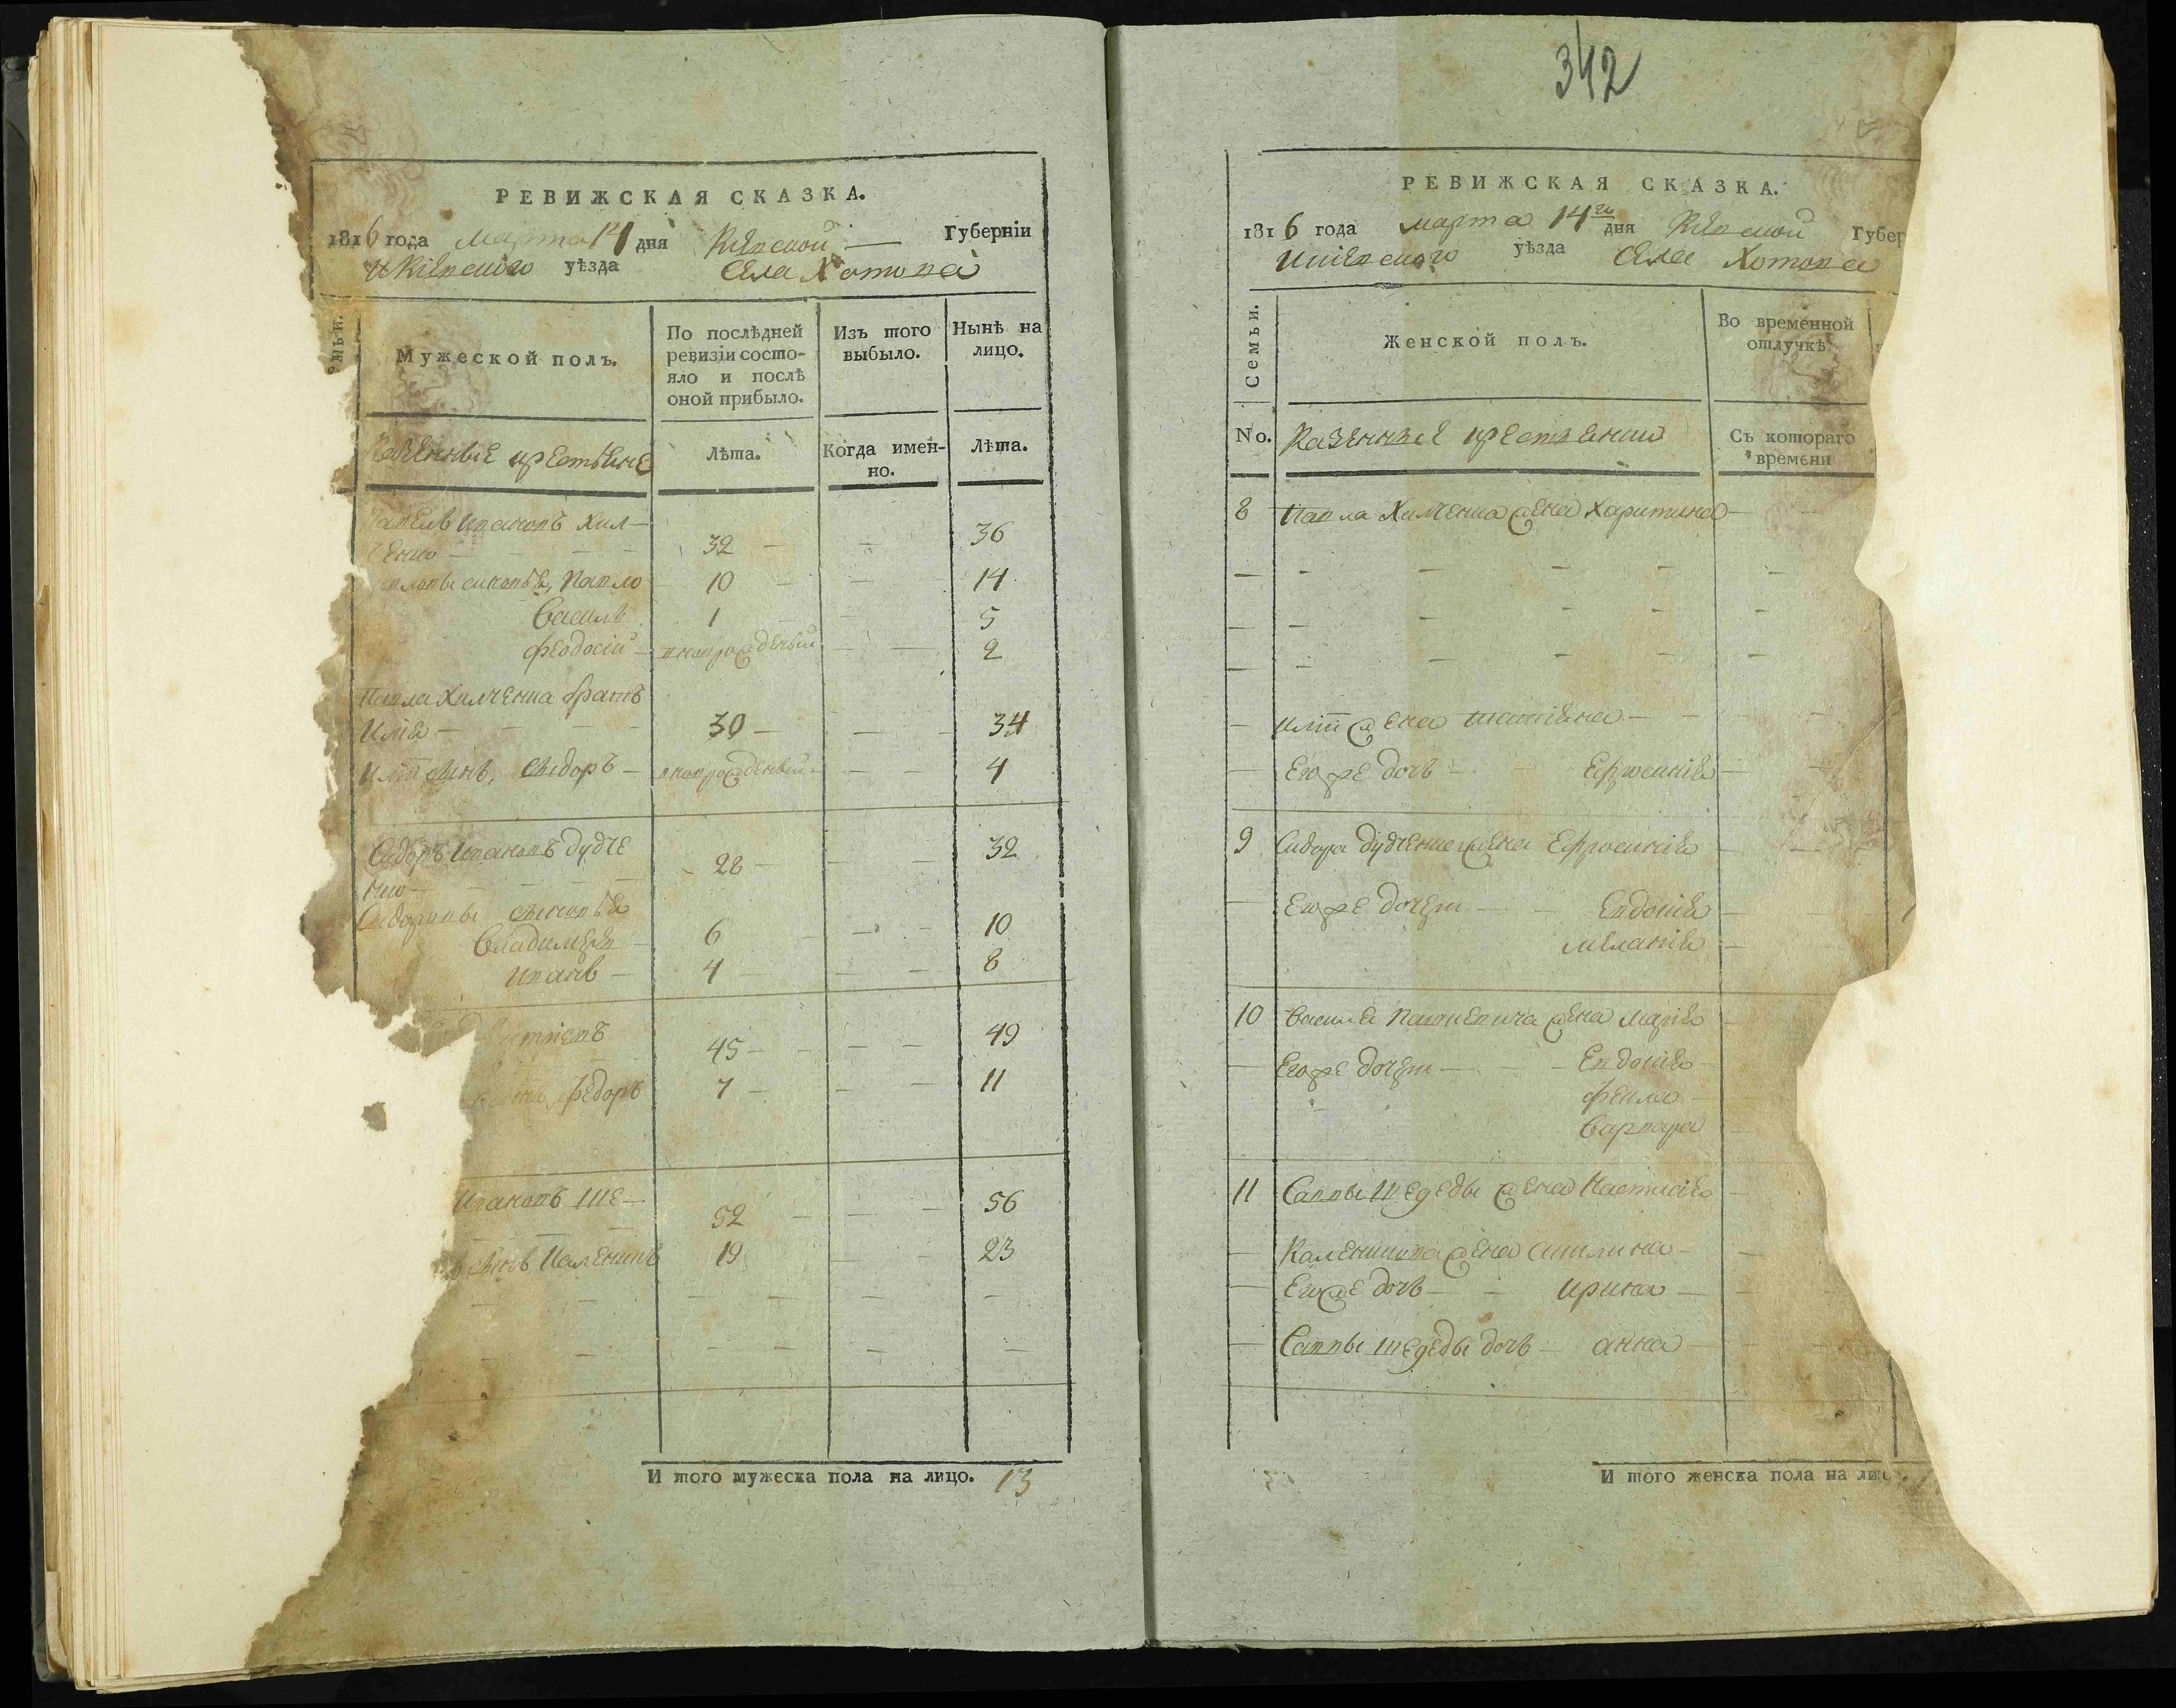 РЕВИЖСКАЯ СКАЗКА.
1816 года Марта 14 дня Кіевской Губерніи
и Кіевского уѣзда Села Хотова
мьи.
Мужеской полъ.
По послѣдней
ревизіи состо-
яло и послѣ
оной прибыло.
Изъ того
выбыло.
Нынѣ на
лицо.
Казенные крестьяне
Лѣта.
Когда имен-
но.
Лѣта.
Павелъ Ивановъ Хил-
ченко 32 36
сыновья, Павло 10 14
Василь 1 5
Феодосій новорожденый 2
Павла Хилченка братъ
Илія 30 34
Иліи сынъ, Сидоръ новорожденый 4
Сидоръ Ивановъ Дудче
нко 28 32
Сидоровы сыновья
Владимеръ 6 10
Иванъ 4 8
45 49
Федоръ 7 11
Ивановъ Ше-
52 56
сынъ Каленикъ 19 23
И того мужеска пола на лицо. 13
342
РЕВИЖСКАЯ СКАЗКА.
1816 года марта 14го дня Кіевской Губер
и Кіевского уѣзда Села Хотова
Семьи.
Женской полъ.
Во временной
отлучкѣ.
No. Казенные крестьянки
Съ котораго
времени
8 Павла Хилченка жена Харитина
Иліи жена Татіяна
Его же дочь Ефросинія
9 Сидора Дудченка жена Ефросинія
Его же дочери Евдокія
Меланія
10 Василя жена Марія
Его же дочери Евдокія
Фекла
Варвара
11 Саввы Шереды жена Настасія
Каленикова жена Акилина
Его же дочь Ирина
Саввы Шереды дочь Анна
И того женска пола на лиц